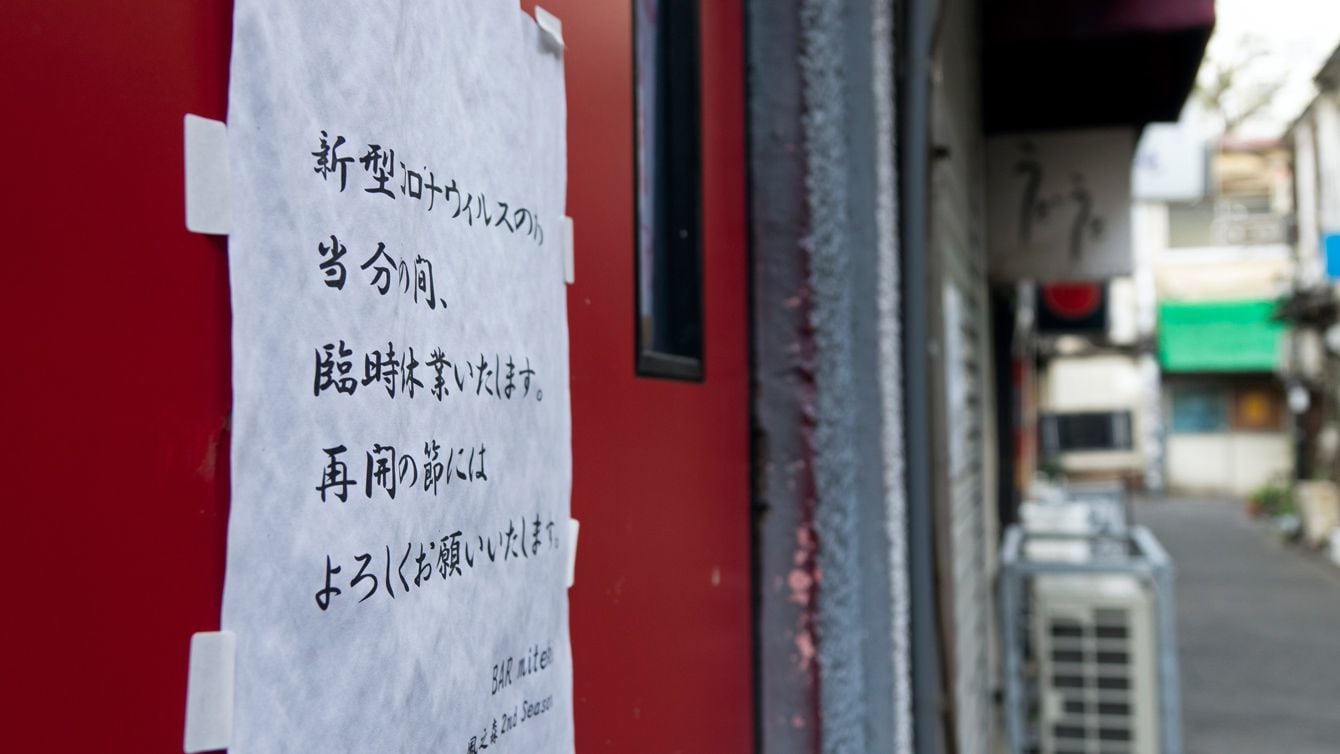 新型コロナウィルスのた
当分の間、
臨時休業いたします。
再開の節には
よろしくお願いいたします。
BAR miter
風之森 2nd Season